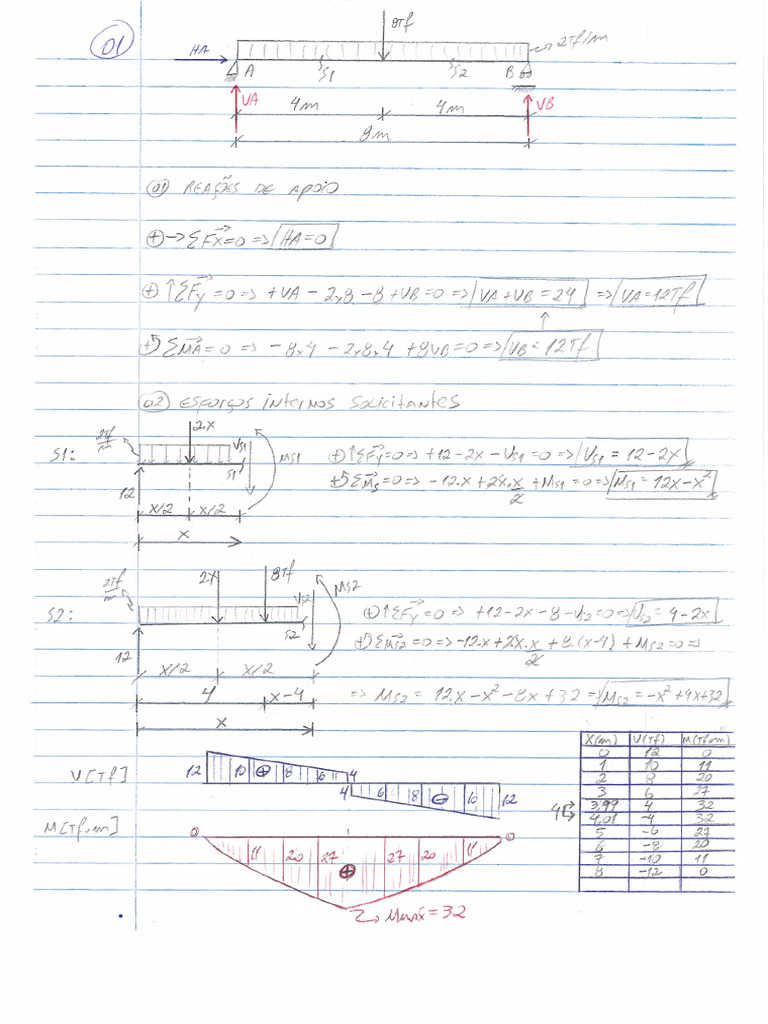 01
8Tf
HA
2Tf/m
A
S1
S2
B
VA
4m
4m
VB
8m
01 REAÇÕES DE APOIO
⊕→ΣFx=0=> HA=0
⊕↑ΣFy=0=> +VA-2x8-8+VB=0=> VA+VB=24 => VA=12Tf
⊕ΣMA=0=> -8x4-2x8x4+8VB=0=> VB=12Tf
02 ESFORÇOS INTERNOS SOLICITANTES
S1:
2Tf/m
2x
VS1
S1
MS1
12
x/2
x/2
x
⊕↑ΣFy=0=> +12-2x-VS1=0=> VS1=12-2x
⊕ΣMS=0=> -12.x+2x.x/2+MS1=0=> MS1=12x-x²
S2:
2Tf/m
2x
8Tf
VS2
MS2
S2
12
x/2
x/2
4
x-4
x
⊕↑ΣFy=0=> +12-2x-8-VS2=0=> VS2=4-2x
⊕ΣMS2=0=> -12.x+2x.x/2+8.(x-4)+MS2=0=>
=> MS2=12.x-x²-8x+32=> MS2=-x²+4x+32
V[Tf]
12 10 ⊕ 8 6 4
4 6 8 ⊖ 10 12
M[Tf.m]
0 11 20 27 27 20 11 0
⊕
Mmáx=32
X(m) V(Tf) M(Tf.m)
0 12 0
1 10 11
2 8 20
3 6 27
4
3,99 4 32
4,01 -4 32
5 -6 27
6 -8 20
7 -10 11
8 -12 0